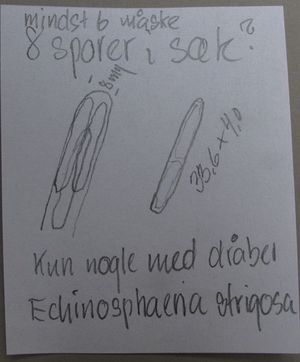 mindst 6 måske
8 sporer i sæk?
8 my
38,6 x 4,0
Kun nogle med dråber
Echinosphaeria strigosa